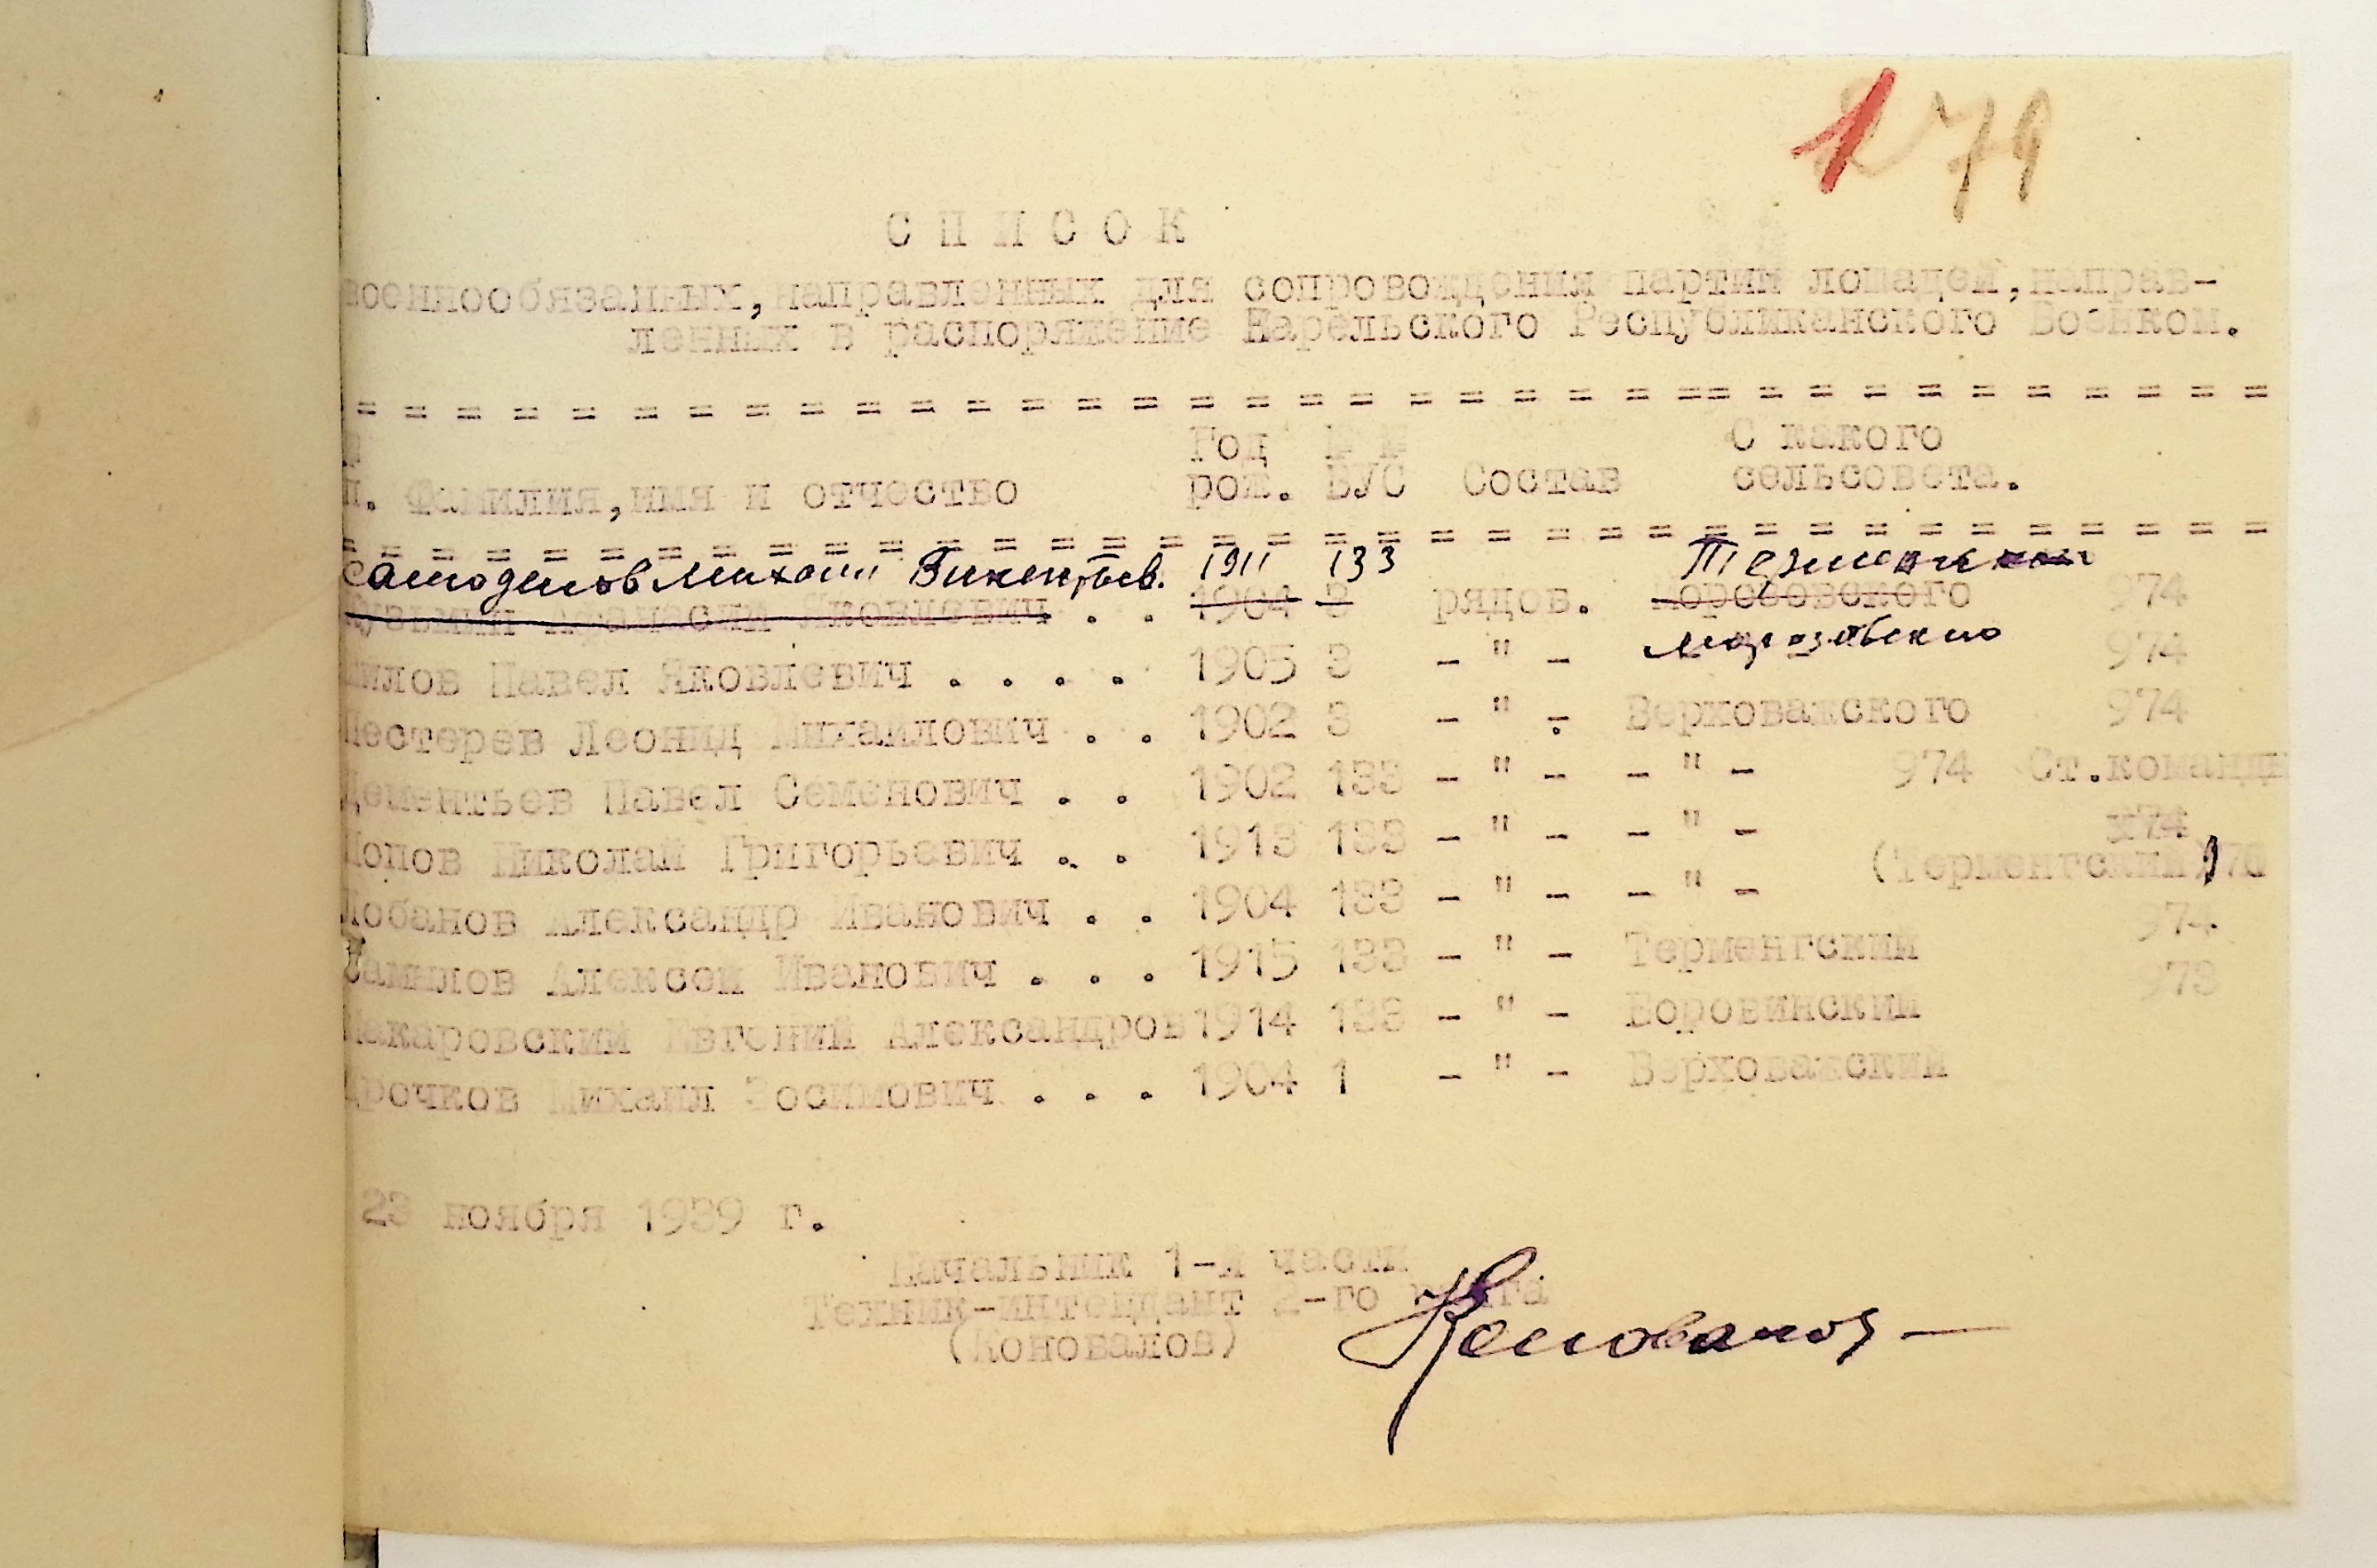 79
С П И С О К
военнообязанных, направленных для сопровождения партии лошадей, направ-
ленных в распоряжение Карельского Республиканского Военком.
= = = = = = = = = = = = = = = = = = = = = = = = = = = = = = = = = = =
Год № № С какого
п. Фамилия, имя и отчество рож. ВУС Состав сельсовета.
= = = = = = = = = = = = = = = = = = = = = = = = = = = = = = = = = = =
Самоделов Михаил Викентьев. 1911 133
Яковлевич . . 1904 3 рядов. 974
Морозовского
Шилов Павел Яковлевич . . . . 1905 3 - " - 974
Шестерев Леонид Михайлович . . 1902 3 - " - Верховажского 974
Дементьев Павел Семенович . . 1902 133 - " - - " - 974 Ст.команды
Попов Николай Григорьевич . . 1913 133 - " - - " - 974
(Терменгский)
Лобанов Александр Иванович . . 1904 133 - " - - " - 974
Алексей Иванович . . . 1915 133 - " - Терменгский 973
Макаровский Евгений Александров 1914 133 - " - Боровинский
Михаил Зосимович . . . 1904 1 - " - Верховажский
23 ноября 1939 г.
Начальник 1-й части
Техник-интендант 2-го ранга
(Коновалов) Коновалов